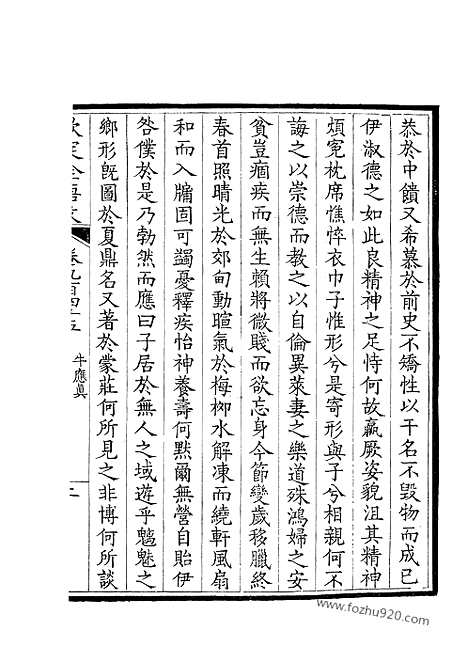 恭於中饋又希慕於前史不矯性以干名不毀物而成已
伊淑德之如此良精神之足恃何故羸厥姿貌沮其精神
煩寃枕席憔悴衣巾子惟形兮是寄形與子兮相親何不
誨之以崇德而敎之以自倫異萊妻之樂道殊鴻婦之安
貧豈痼疾而無生賴將微賤而欲忘身今節變歲移臘終
春首照晴光於郊甸動暄氣於梅栁水解凍而繞軒風扇
和而入牖固可蠲憂釋疾怡神養壽何默爾無營自貽伊
咎僕於是乃勃然而應曰子居於無人之域遊乎魑魅之
鄉形旣圖於夏鼎名又著於蒙莊何所見之非博何所談
欽定全唐文
卷九百四十五
牛應眞
www.fozhu920.com